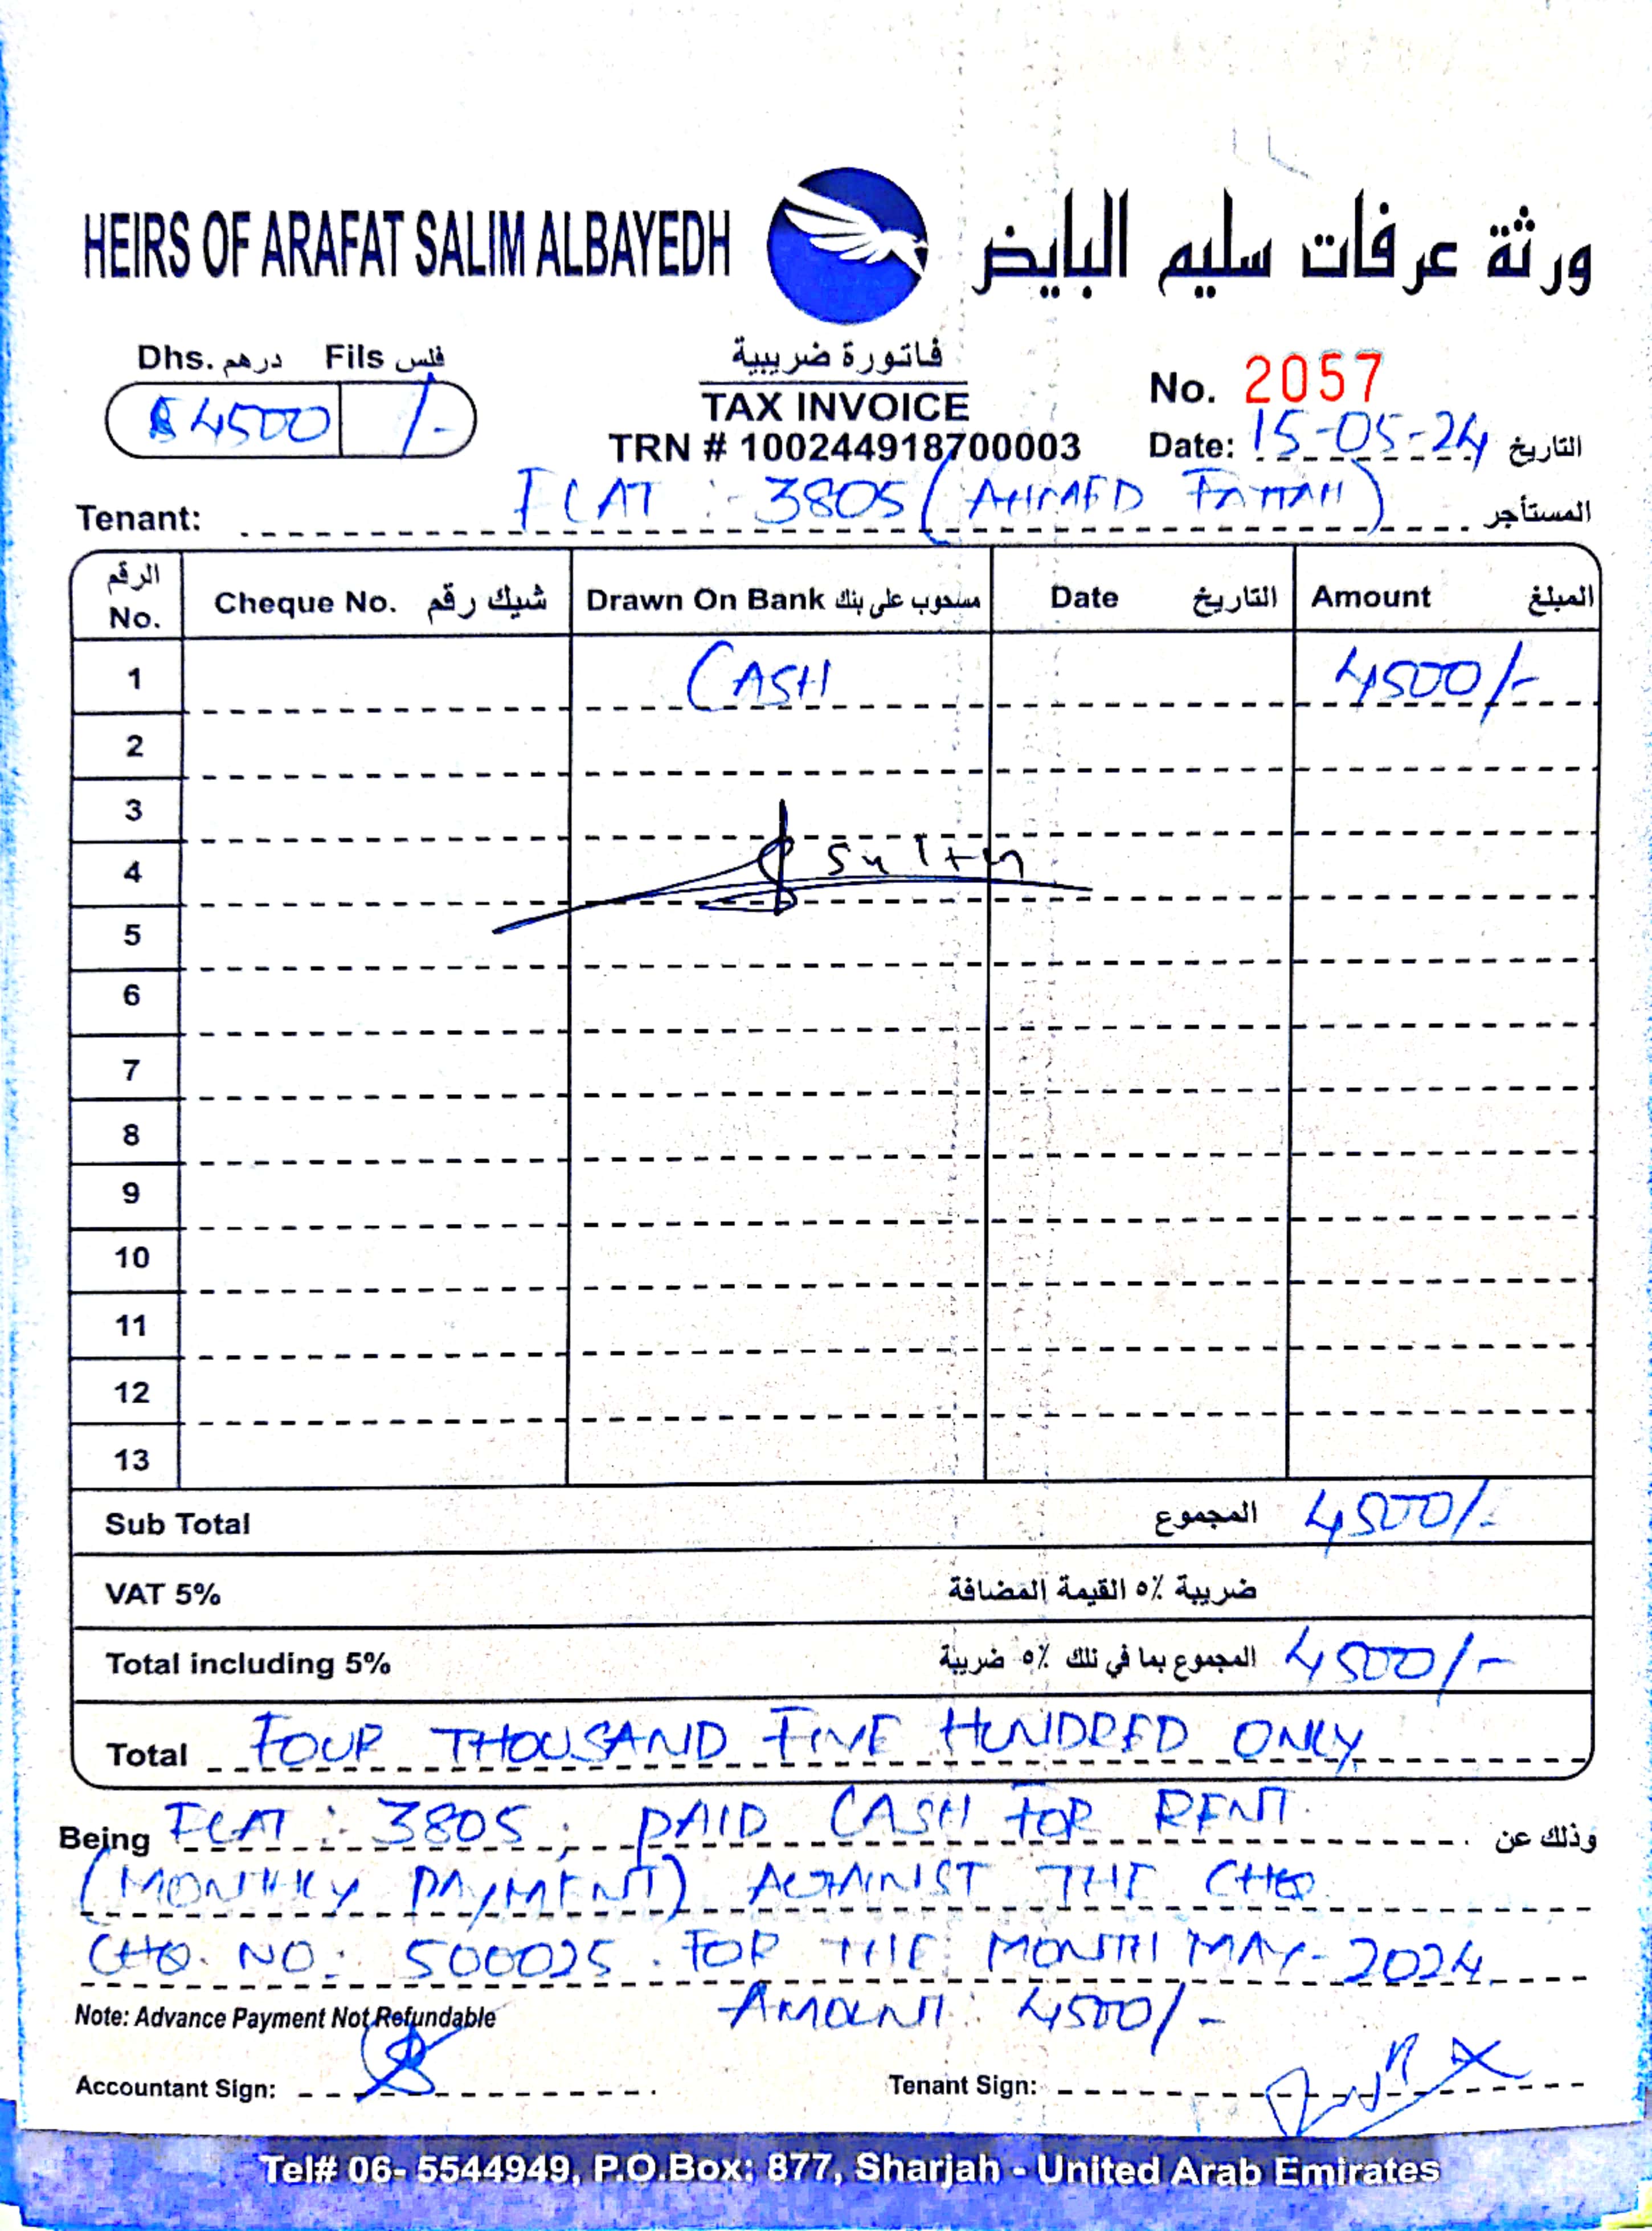 HEIRS OF ARAFAT SALIM ALBAYEDH ورثة عرفات سليم البايض
Dhs. درهم Fils فلس
4500 /-
فاتورة ضريبية
TAX INVOICE
TRN # 100244918700003
No. 2057
Date: 15-05-24 التاريخ
Tenant: FLAT :- 3805 (AHMED FATTAH) المستأجر
الرقم No. Cheque No. شيك رقم Drawn On Bank مسحوب على بنك Date التاريخ Amount المبلغ
1 CASH 4500/-
2
3
4
5
6
7
8
9
10
11
12
13
Sub Total المجموع 4500/-
VAT 5% ضريبة ٥٪ القيمة المضافة
Total including 5% المجموع بما في ذلك ٥٪ ضريبة 4500/-
Total FOUR THOUSAND FIVE HUNDRED ONLY
Being FLAT : 3805, PAID CASH FOR RENT. وذلك عن
(MONTHLY PAYMENT) AGAINST THE CHQ
CHQ. NO: 500025. FOR THE MONTH MAY-2024
AMOUNT: 4500/-
Note: Advance Payment Not Refundable
Accountant Sign: Tenant Sign:
Tel# 06- 5544949, P.O.Box: 877, Sharjah - United Arab Emirates